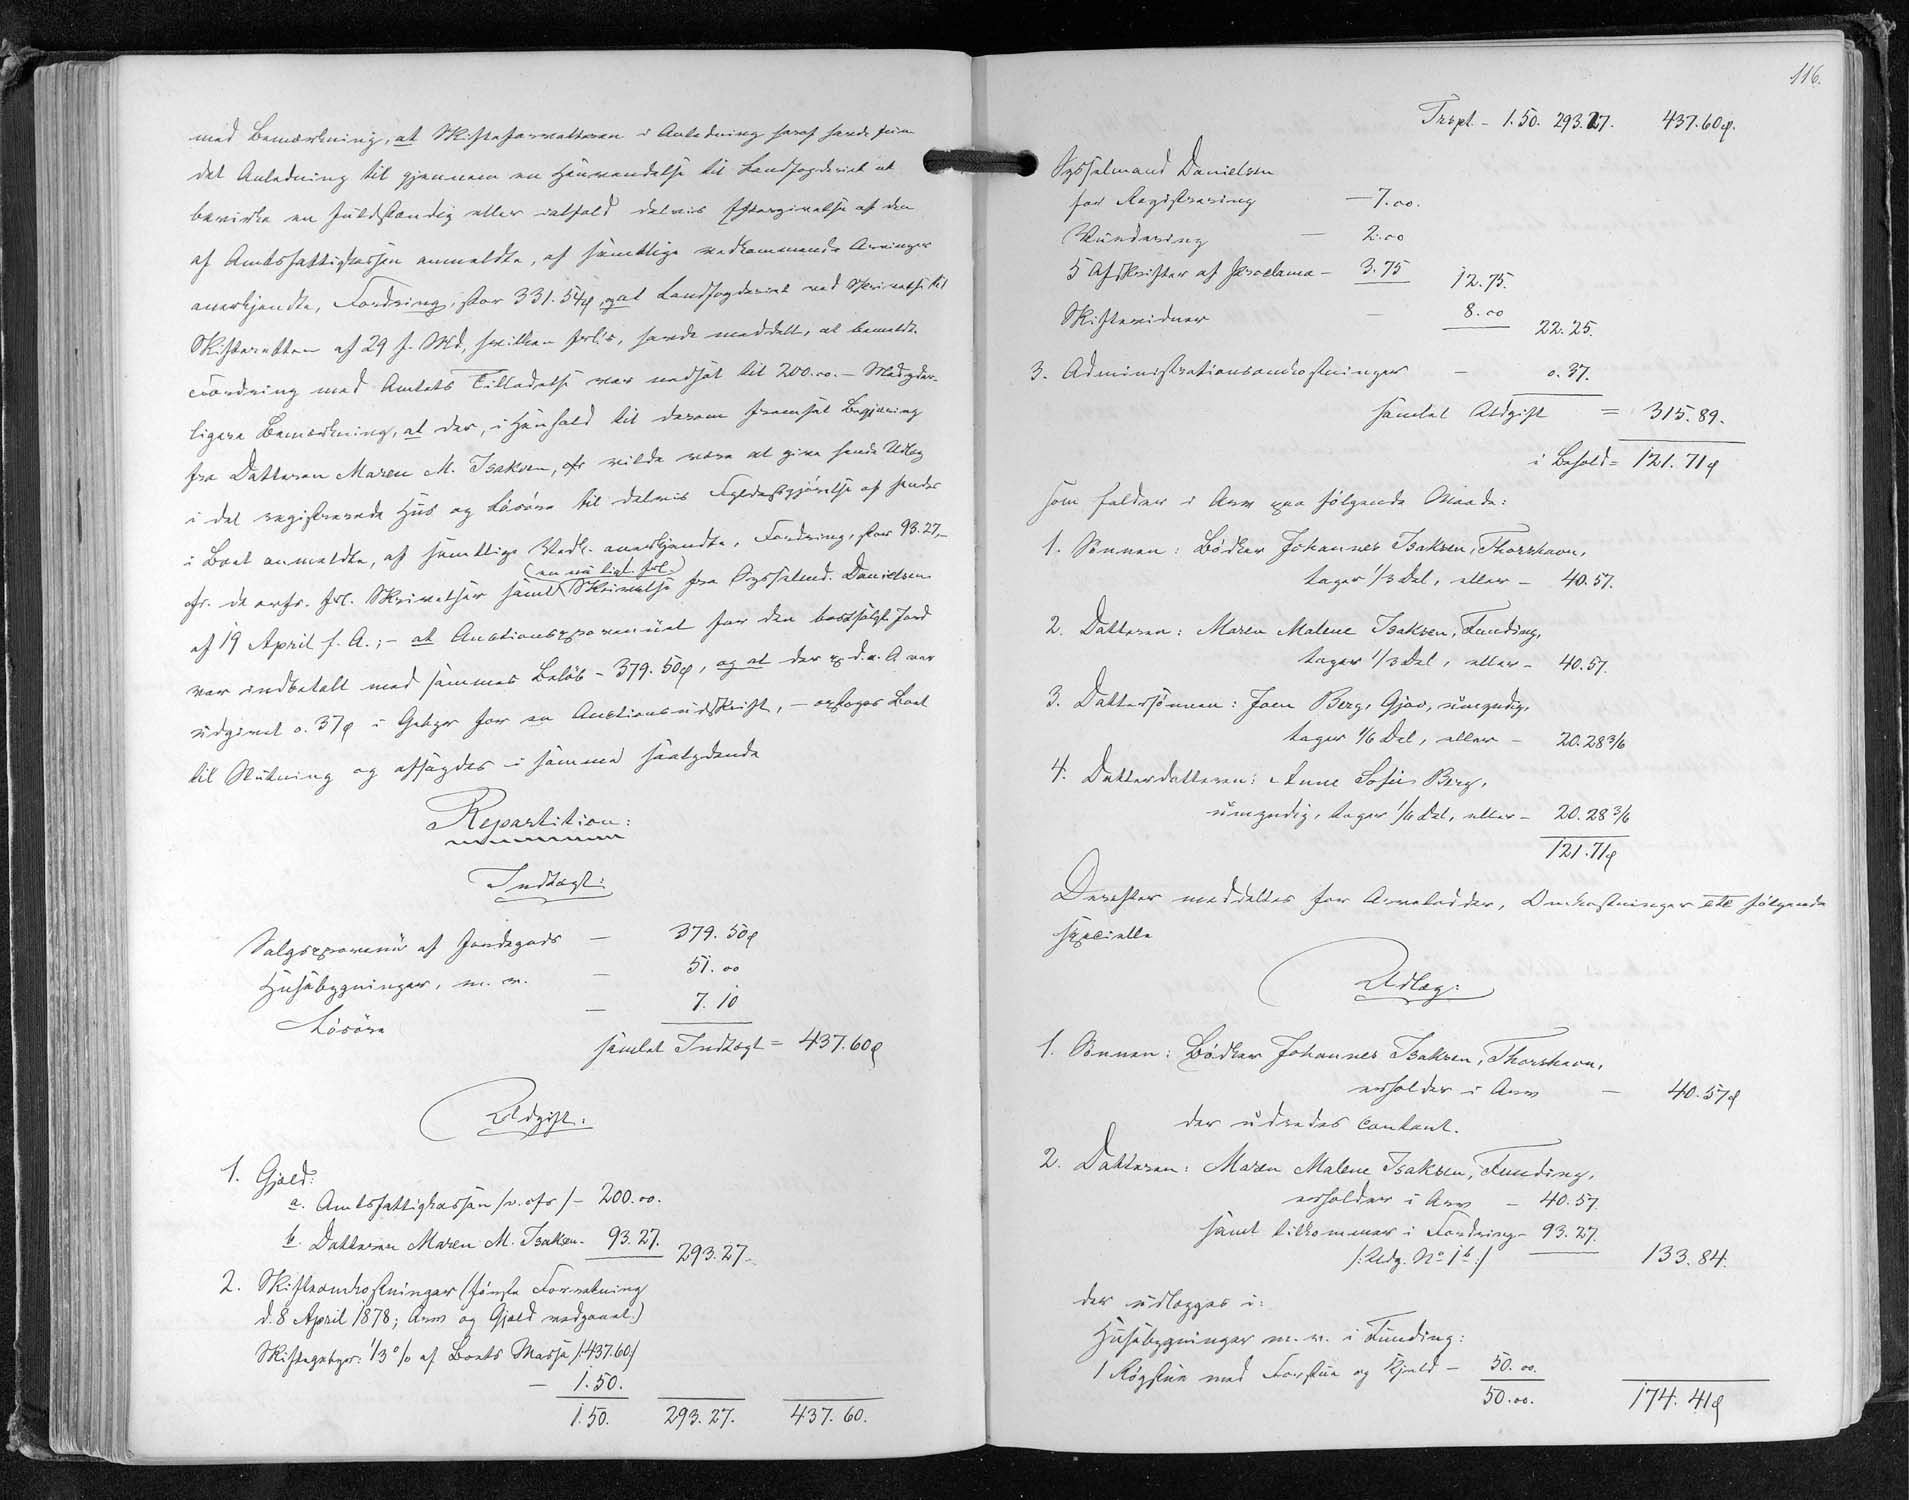 med Bemærkning, at Skifteforvalteren i Anledning heraf havde fun-
det Anledning til gjennem en Henvendelse til Landfogderiet at
bevirke en fuldstændig eller ialfald delvis Eftergivelse af den
af Amtsfattigkassen anmeldte, af samtlige vedkommende Arvinger
anerkjendte, Fordring, stor 331.54ϕ, og at Landfogderiet ved Skrivelse til
Skifteretten af 29 f. Md., hvilken frl's, havde meddelt, at bemeldte
Fordring med Amtets Tilladelse var nedsat til 200.00. – Medyder-
ligere Bemærkning, at der, i Henhold til derom fremsat Begjæring
fra Datteren Maren M. Isaksen, vilde være at give hende Udlæg
i det registrerede Hus og Lösöre til delvis Fyldestgjörelse af hendes
i Boet anmeldte, af samtlige Vedk. anerkjendte, Fordring, stor 93.27,–
(en nu ligl. frl.)
cfr. de Skrivelser samt Skrivelse fra Sysselmd. Danielsen
af 19 April f. A.; – at Auctionsprovenüet for den bortsolgte Jord
var indbetalt med sammes Belöb – 379.50ϕ, og at der p. d. a. A var
udgivet 0.37ϕ i Gebyr for en Auctionsudskrift, – optoges Boet
til Slutning og afsagdes i samme saalydende
Repartition:
Indtægt:
Salgsprovenü af Jordegods – 379.50ϕ
Husebygninger, m. v. – 51.00
Lösöre – 7.10
samlet Indtægt = 437.60ϕ
Udgift:
1. Gjæld:
a. Amtsfattigkassen /v. ofr/ – 200.00.
b. Datteren Maren M. Isaksen – 93.27. 293.27.
2. Skifteomkostninger (förste Forretning
d. 8 April 1878; Arv og Gjæld vedgaaet.)
Skiftegebyr: 1/3 % af Boets Masse /:437.60:/
– 1.50.
1.50. 293.27. 437.60.
116.
Trspt. – 1.50. 293.27. 437.60ϕ.
Sysselmand Danielsen
for Registrering – 7.00.
Vurdering – 2.00
5 Afskrifter af Proclama – 3.75 12.75.
Skiftevidner – 8.00 22.25.
3. Administrationsomkostninger – 0.37.
samlet Udgift = 315.89.
i Behold = 121.71ϕ
som falder i Arv paa følgende Maade:
1. Sönnen: Bödker Johannes Isaksen, Thorshavn,
tager 1/3 Del, eller – 40.57.
2. Datteren: Maren Malene Isaksen, Funding,
tager 1/3 Del, eller – 40.57.
3. Dattersönnen: Joen Berg, Gjov, umyndig,
tager 1/6 Del, eller – 20.28 3/6
4. Datterdatteren: Anne Sofie Berg,
umyndig, tager 1/6 Del, eller – 20.28 3/6
121.71ϕ
Derefter meddeltes for Arvelodder, Omkostninger etc fölgende
specielle
Udlæg:
1. Sönnen: Bödker Johannes Isaksen, Thorshavn,
erholder i Arv – 40.57ϕ
der udredes contant.
2. Datteren: Maren Malene Isaksen, Funding,
erholder i Arv – 40.57.
samt tilkommer i Fordring – 93.27.
/: Udg. No 1b :/ 133.84.
der udlægges i:
Husebygninger m. v. i Funding:
1 Rögstue med Forstue og Kjeld – 50.00.
50.00. 174.41ϕ